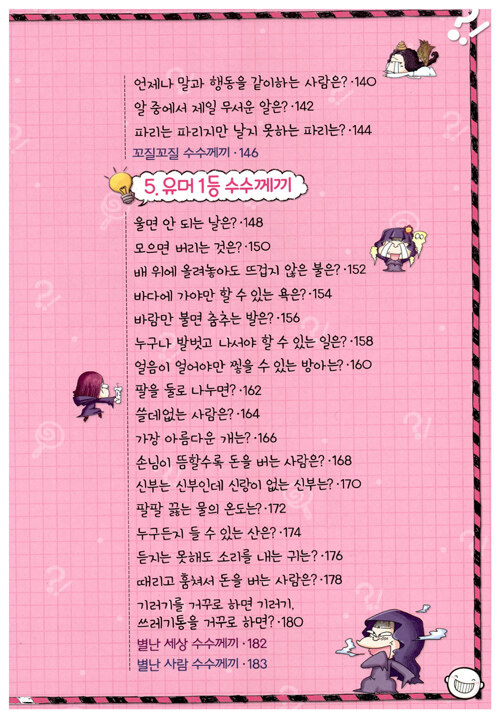 언제나 말과 행동을 같이하는 사람은?·140
알 중에서 제일 무서운 알은?·142
파리는 파리지만 날지 못하는 파리는?·144
꼬질꼬질 수수께끼·146
5. 유머 1등 수수께끼
울면 안 되는 날은?·148
모으면 버리는 것은?·150
배 위에 올려놓아도 뜨겁지 않은 불은?·152
바다에 가야만 할 수 있는 욕은?·154
바람만 불면 춤추는 발은?·156
누구나 발벗고 나서야 할 수 있는 일은?·158
얼음이 얼어야만 찧을 수 있는 방아는?·160
팔을 둘로 나누면?·162
쓸데없는 사람은?·164
가장 아름다운 개는?·166
손님이 뜸할수록 돈을 버는 사람은?·168
신부는 신부인데 신랑이 없는 신부는?·170
팔팔 끓는 물의 온도는?·172
누구든지 들 수 있는 산은?·174
듣지는 못해도 소리를 내는 귀는?·176
때리고 훔쳐서 돈을 버는 사람은?·178
기러기를 거꾸로 하면 기러기,
쓰레기통을 거꾸로 하면?·180
별난 세상 수수께끼·182
별난 사람 수수께끼·183